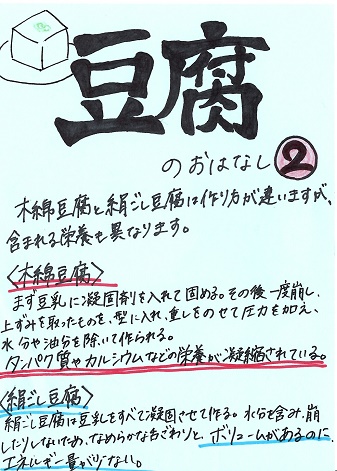 豆腐
のおはなし②
木綿豆腐と絹ごし豆腐は作り方が違いますが、
含まれる栄養も異なります。
〈木綿豆腐〉
まず豆乳に凝固剤を入れて固める。その後一度崩し、
上ずみを取ったものを、型に入れ、重しをのせて圧力を加え、
水分や油分を除いて作られる。
タンパク質やカルシウムなどの栄養が凝縮されている。
〈絹ごし豆腐〉
絹ごし豆腐は豆乳をすべて凝固させて作る。水分を含み、崩
したりしないため、なめらかな舌ざわりと、ボリュームがあるのに、
エネルギー量が少ない。